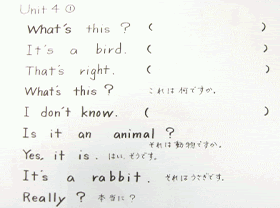 Unit 4 ①
What's this ? (                )
It's a bird. (                )
That's right. (                )
What's this ? これは何ですか。
I don't know. (                )
Is it an animal ?
それは動物ですか。
Yes, it is. はい、そうです。
It's a rabbit. それはうさぎです。
Really ? 本当に？